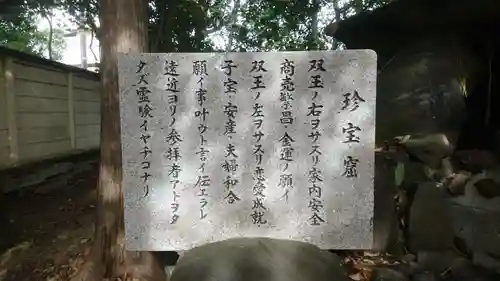 珍宝窟
双王ノ右ヲサスリ家内安全
商売繁昌・金運ノ願イ
双王ノ左ヲサスリ恋愛成就
子宝・安産・夫婦和合
願イ事叶ウト言イ伝エラレ
遠近ヨリノ参拝者アトヲタ
タズ霊験イヤチコナリ